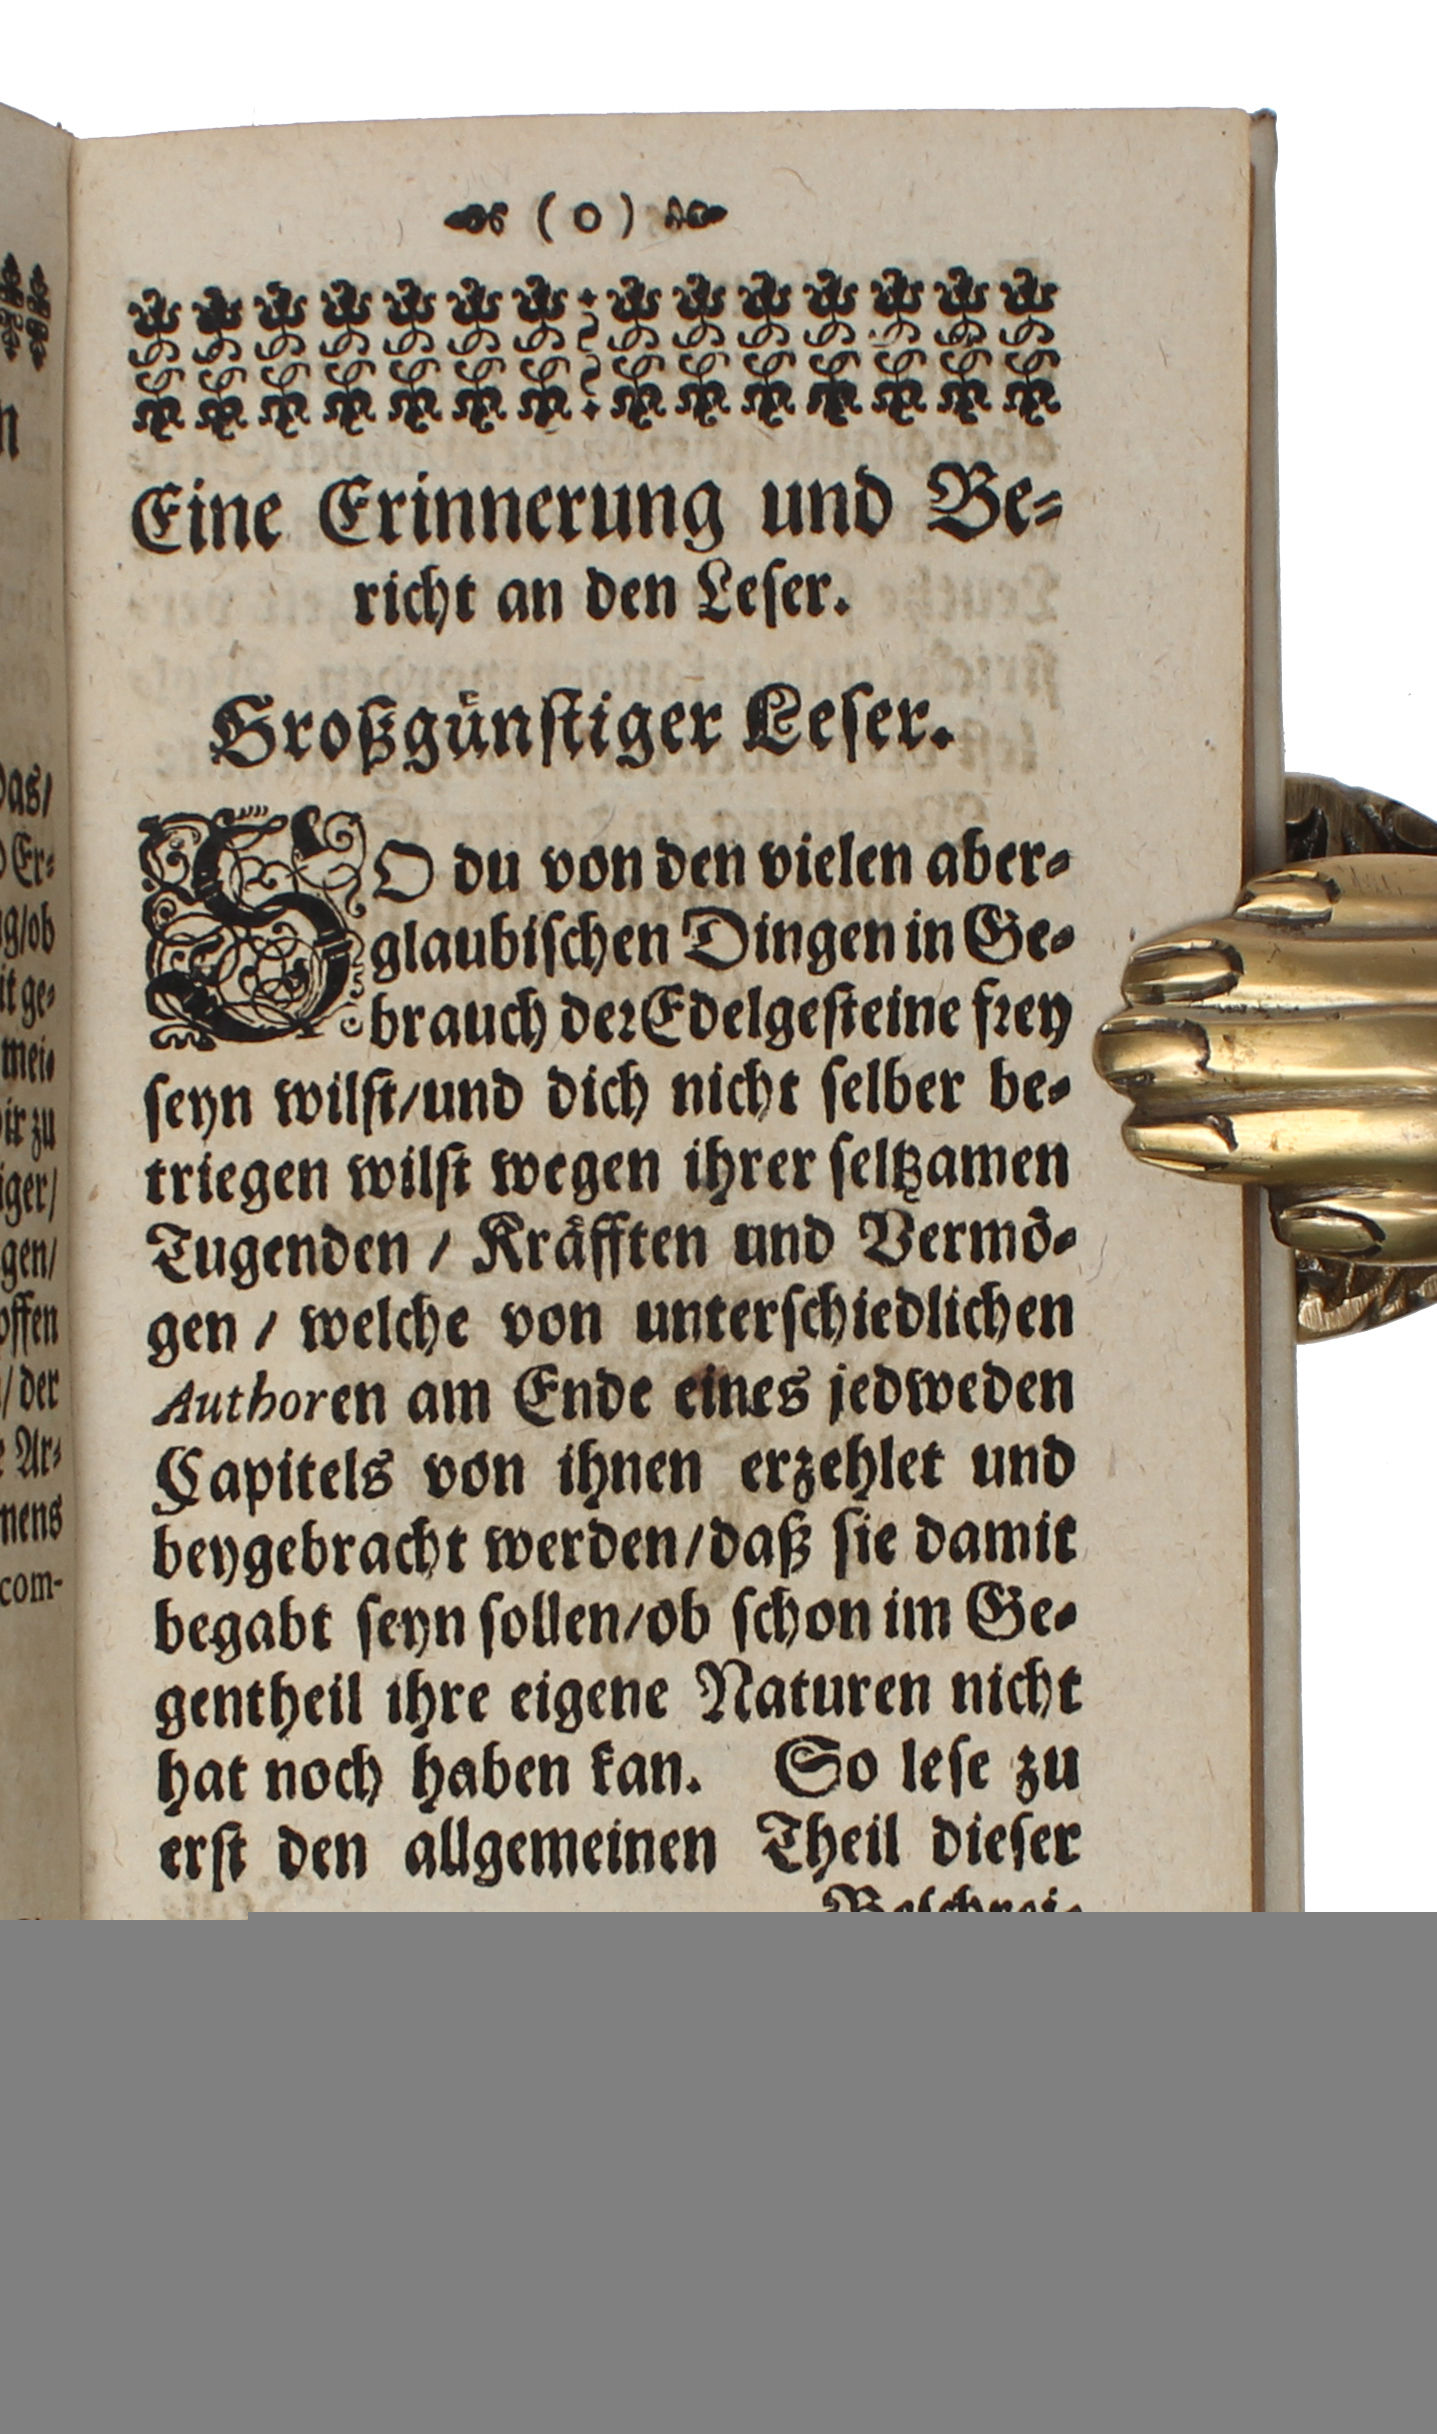 ( 0 )
Eine Erinnerung und Be-
richt an den Leser.
Großgünstiger Leser.
SO du von den vielen aber-
glaubischen Dingen in Ge-
brauch der Edelgesteine frey
seyn wilst/und dich nicht selber be-
triegen wilst wegen ihrer seltzamen
Tugenden / Kräfften und Vermö-
gen / welche von unterschiedlichen
Authoren am Ende eines jedweden
Capitels von ihnen erzehlet und
beygebracht werden/daß sie damit
begabt seyn sollen/ob schon im Ge-
gentheil ihre eigene Naturen nicht
hat noch haben kan. So lese zu
erst den allgemeinen Theil dieser